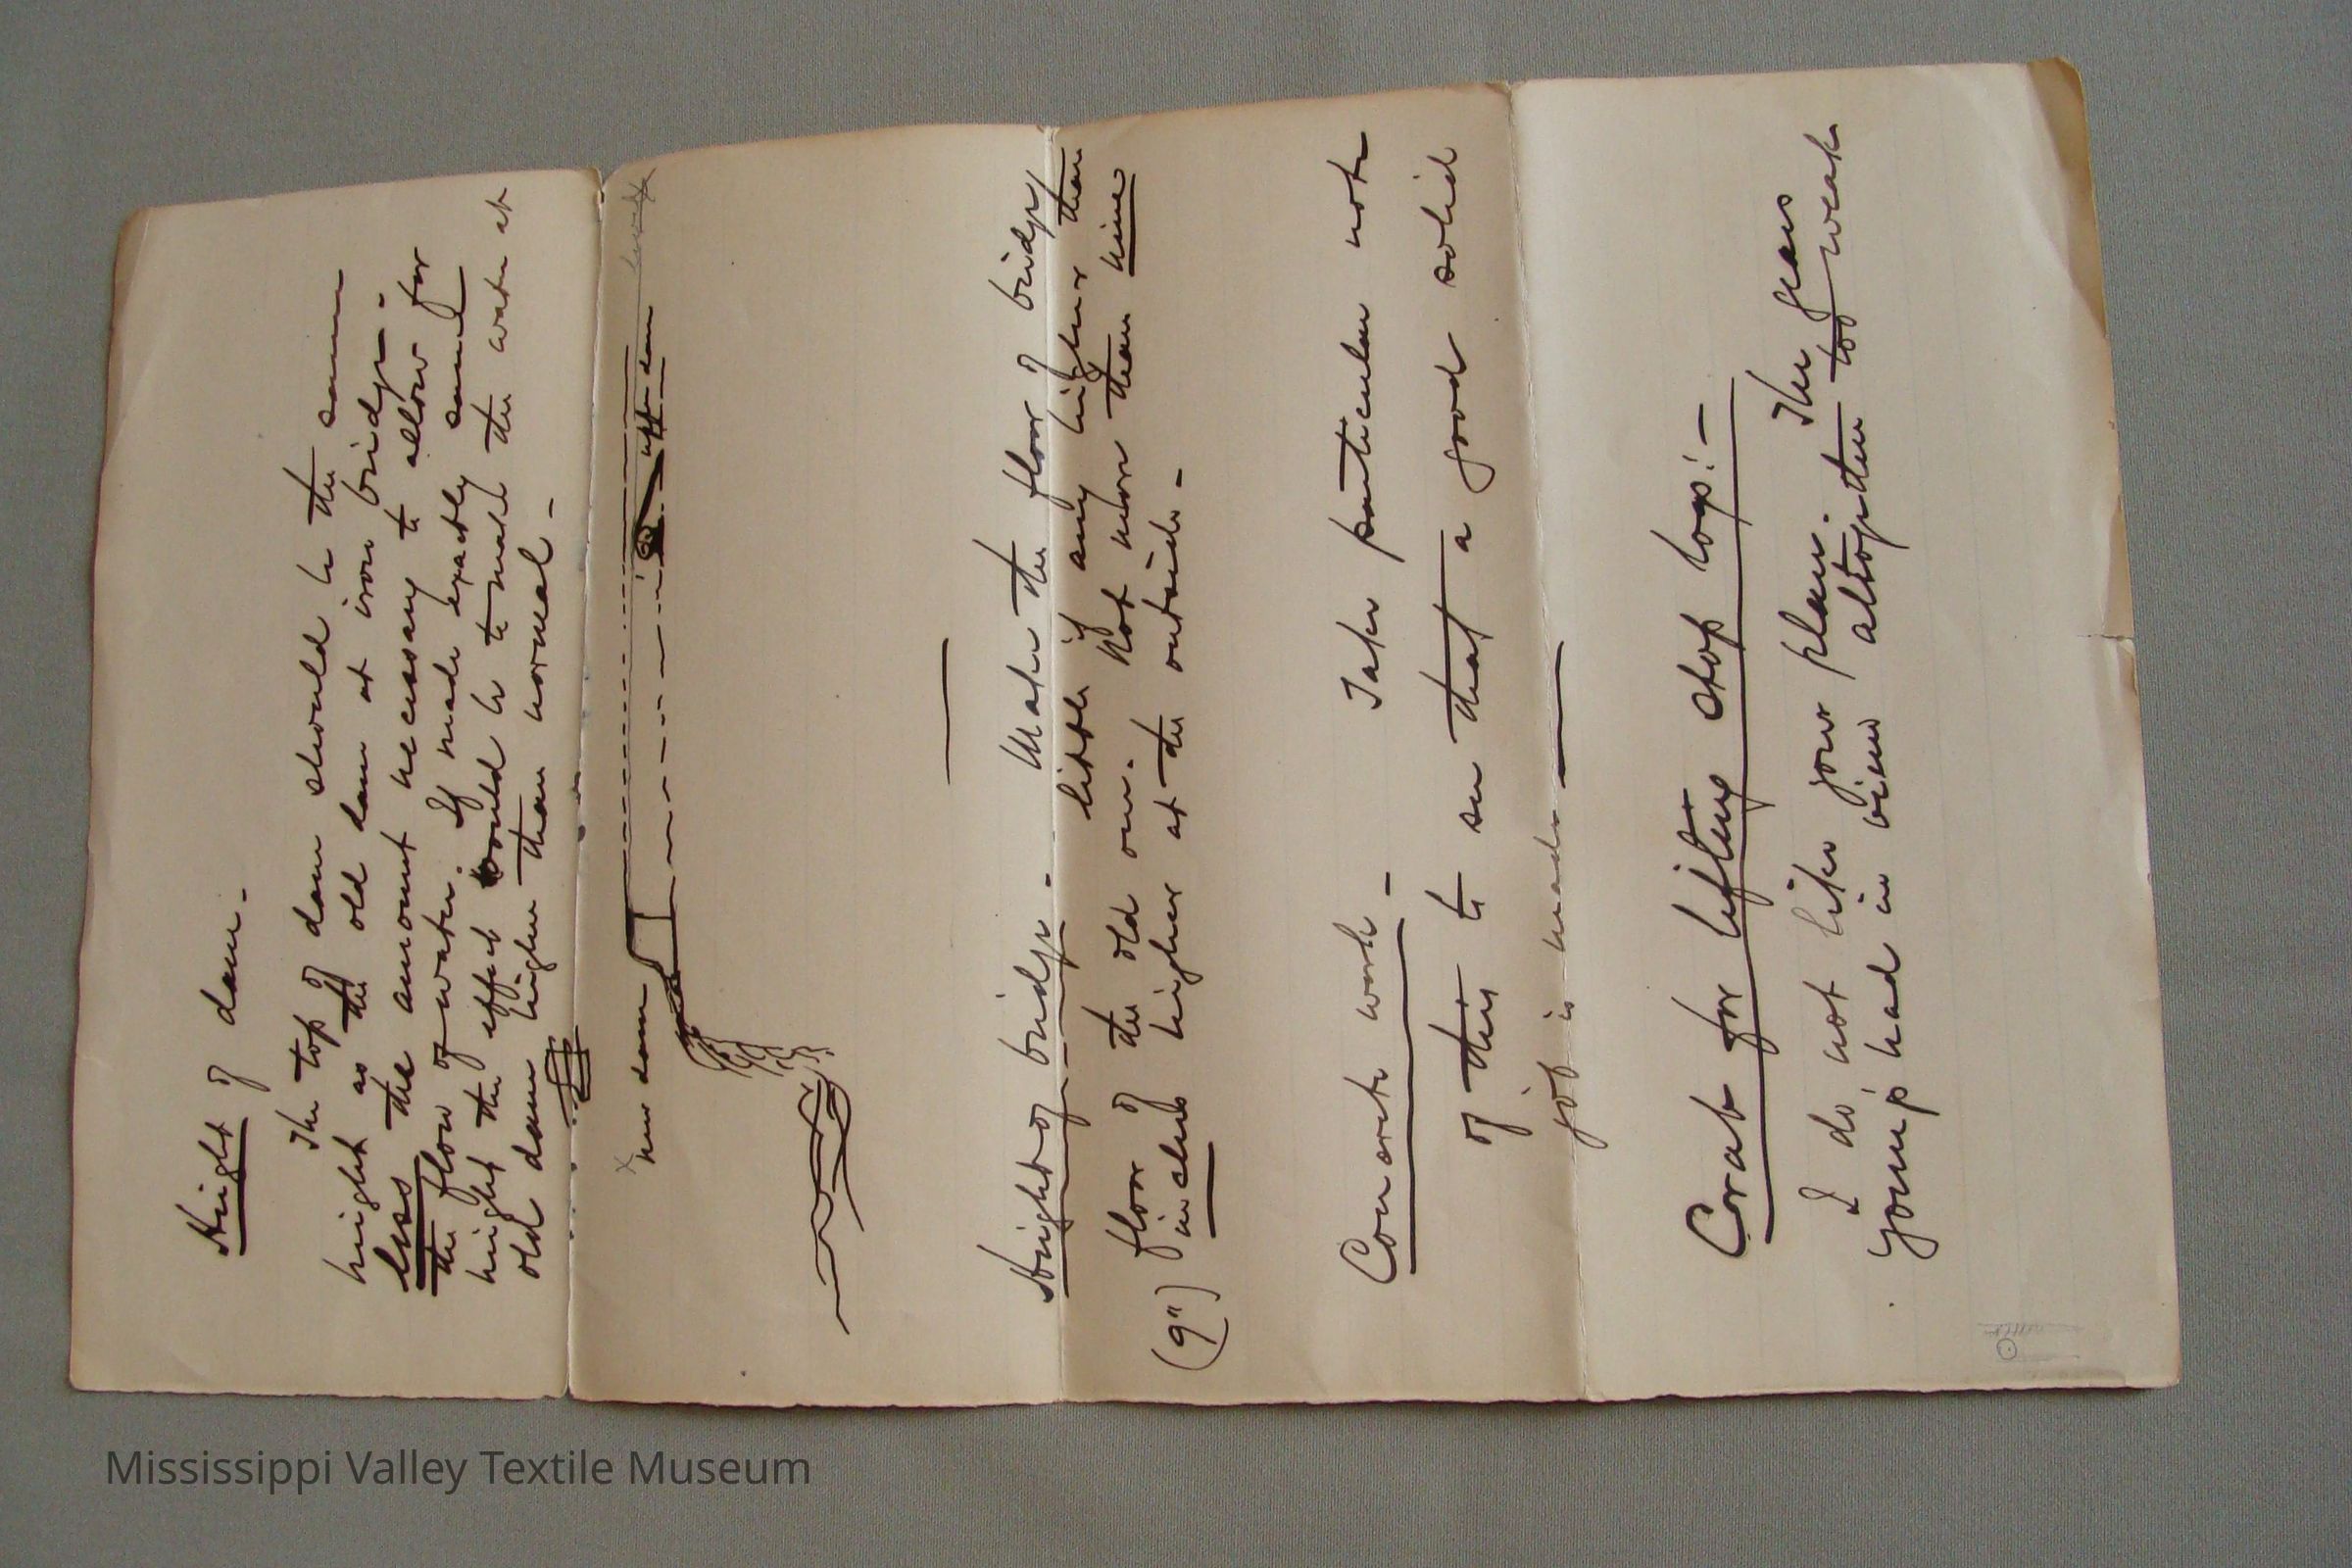 Height of dam.-
The top of dam should be the same
height as the old dam at iron bridge-
less the amount necessary to allow for
the flow of water. If made exactly same
height the effect would be to make the water at
old dam higher than normal.-
new dam
upper dam
Height of bridge.- Make the floor of bridge
little if any higher than
floor of the old one. Not more than nine
(9") inches higher at the outside.-
Concrete work.- Take particular note
of this to see that a good solid
job is made
Crab for lifting stop logs:-
I do not like your plan. The gears
young had in view altogether too weak
Mississippi Valley Textile Museum